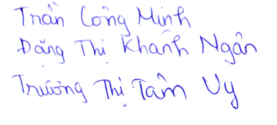 Trần Công Minh
Đặng Thị Khánh Ngân
Trương Thị Tâm Vy